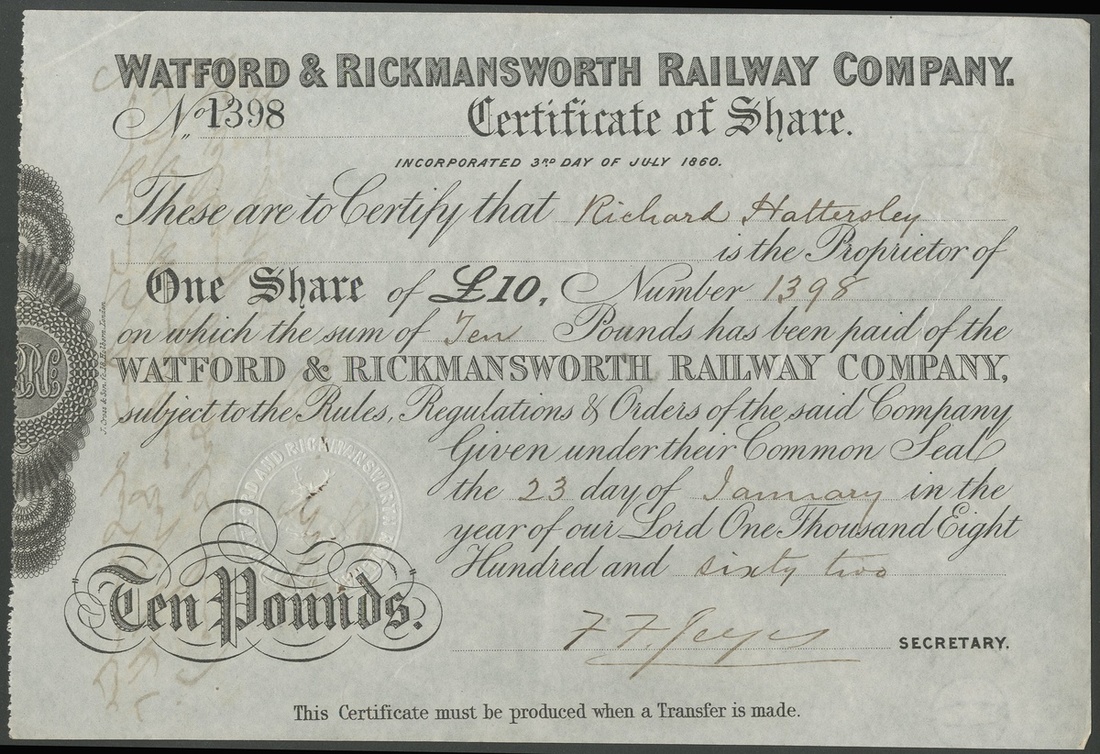 WATFORD & RICKMANSWORTH RAILWAY COMPANY.
No 1398 Certificate of Share.
INCORPORATED 3RD DAY OF JULY 1860.
These are to Certify that Richard Hattersley
is the Proprietor of
One Share of £10, Number 1398
on which the sum of Ten Pounds has been paid of the
WATFORD & RICKMANSWORTH RAILWAY COMPANY,
subject to the Rules, Regulations & Orders of the said Company
Given under their Common Seal
the 23 day of January in the
year of our Lord One Thousand Eight
Hundred and sixty two
Ten Pounds.
F F Jeyes
SECRETARY.
This Certificate must be produced when a Transfer is made.
AND RICKMANSWORTH